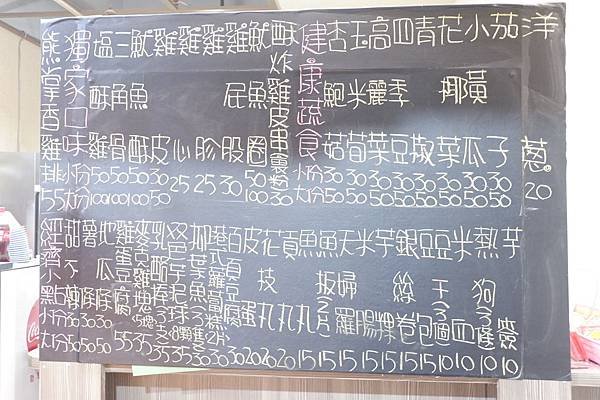 熊掌香雞排 55
獨家口味 小份 大份
鹽酥雞 50 100
三角骨 50 100
魷魚酥 50 100
雞皮 30 50
雞心 25
雞肫 25
雞屁股 30
魷魚圈 50 100
酥炸雞皮串 30
健康蔬食 小份 大份
杏鮑菇 30 50
玉米筍 30 50
高麗菜 30 50
四季豆 30 50
青椒 30 50
花椰菜 30 50
小黃瓜 30 50
茄子 30 50
洋蔥 20
經濟小點 小份 大份
甜不辣 30 50
薯條 30 50
地瓜條 30 50
雞蛋豆腐 35
麥克雞塊 5塊 35
乳酪棒
百頁豆腐 30
皮蛋 20
花枝丸 20
貢丸 20
魚板 2片 15
天婦羅 15
米腸 15
芋粿 15
銀絲卷 15
豆包 15
豆干 3個 10
米血 10
熱狗 10